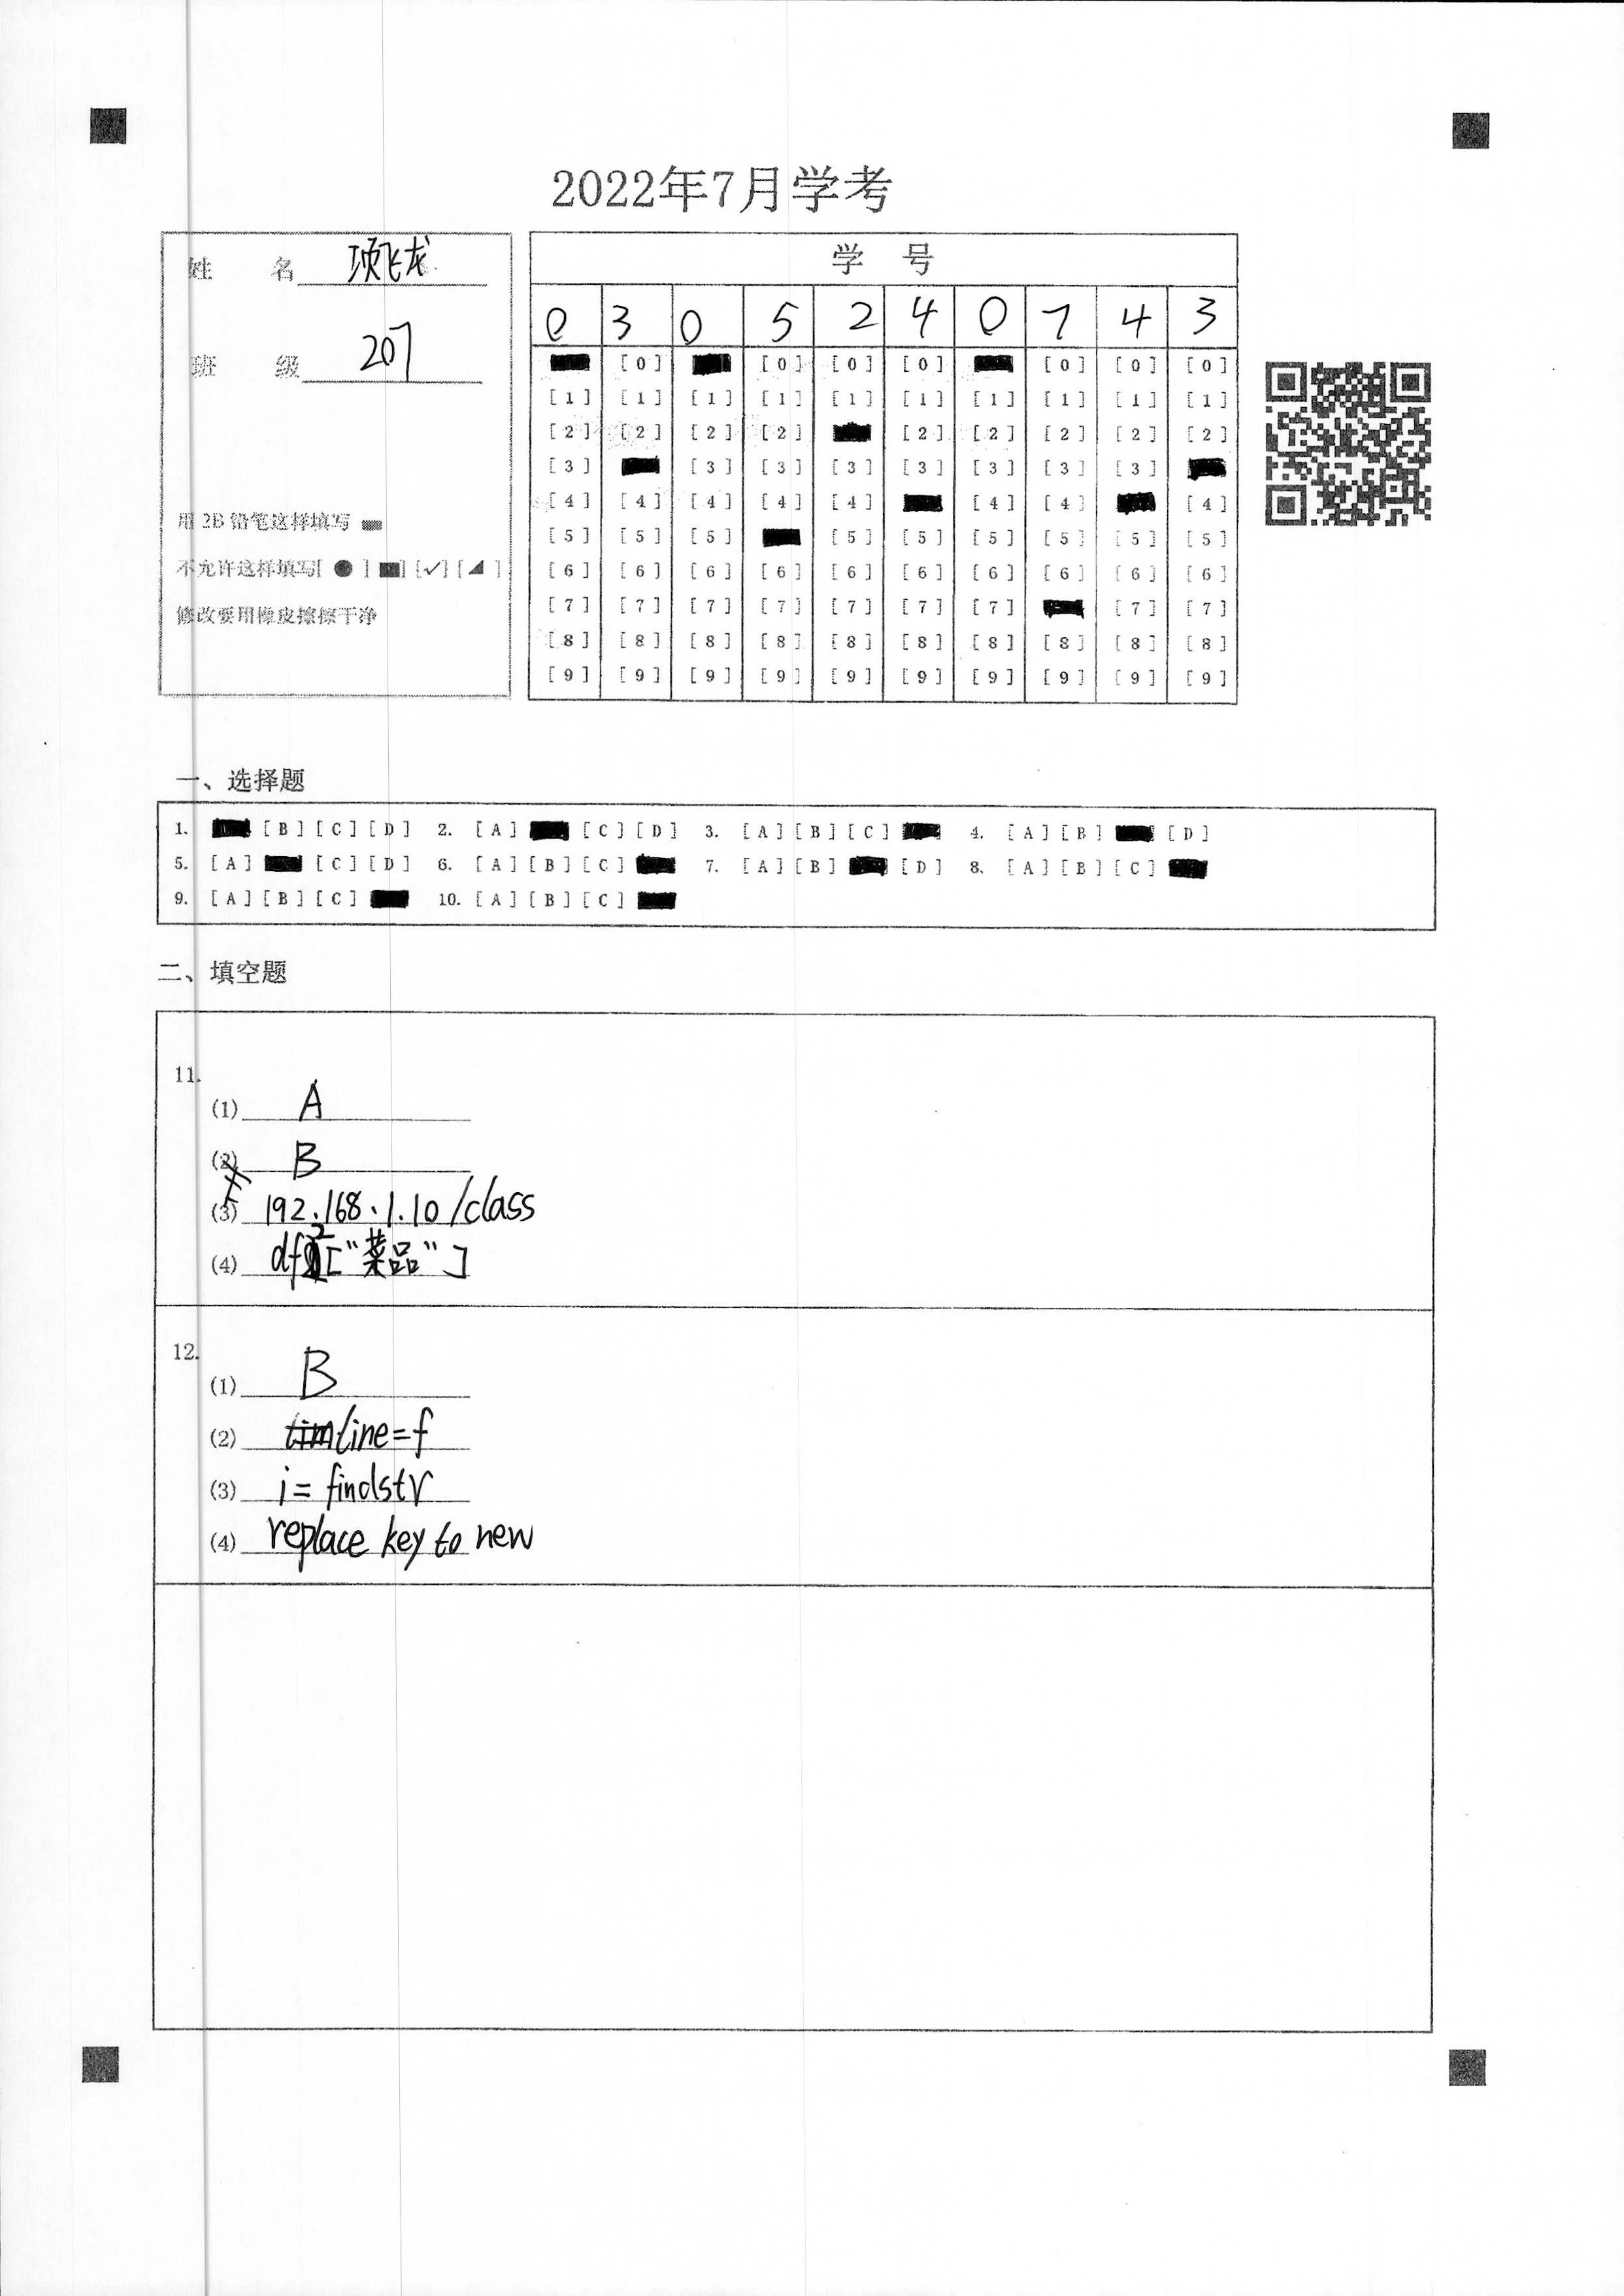 2022年7月学考
姓 名 项飞龙
班 级 207
用 2B 铅笔这样填写
不允许这样填写[ ● ] [■] [✓] [◢ ]
修改要用橡皮擦擦干净
学 号
0 3 0 5 2 4 0 7 4 3
[0] [0] [0] [0] [0] [0] [0]
[1] [1] [1] [1] [1] [1] [1] [1] [1] [1]
[2] [2] [2] [2] [2] [2] [2] [2] [2]
[3] [3] [3] [3] [3] [3] [3] [3]
[4] [4] [4] [4] [4] [4] [4] [4]
[5] [5] [5] [5] [5] [5] [5] [5] [5]
[6] [6] [6] [6] [6] [6] [6] [6] [6] [6]
[7] [7] [7] [7] [7] [7] [7] [7] [7]
[8] [8] [8] [8] [8] [8] [8] [8] [8] [8]
[9] [9] [9] [9] [9] [9] [9] [9] [9] [9]
一、选择题
1. [B] [C] [D] 2. [A] [C] [D] 3. [A] [B] [C] 4. [A] [B] [D]
5. [A] [C] [D] 6. [A] [B] [C] 7. [A] [B] [D] 8. [A] [B] [C]
9. [A] [B] [C] 10. [A] [B] [C]
二、填空题
11.
(1) A
(2) B
(3) 192.168.1.10/class
(4) df2["菜品"]
12.
(1) B
(2) line=f
(3) i= findstr
(4) replace key to new